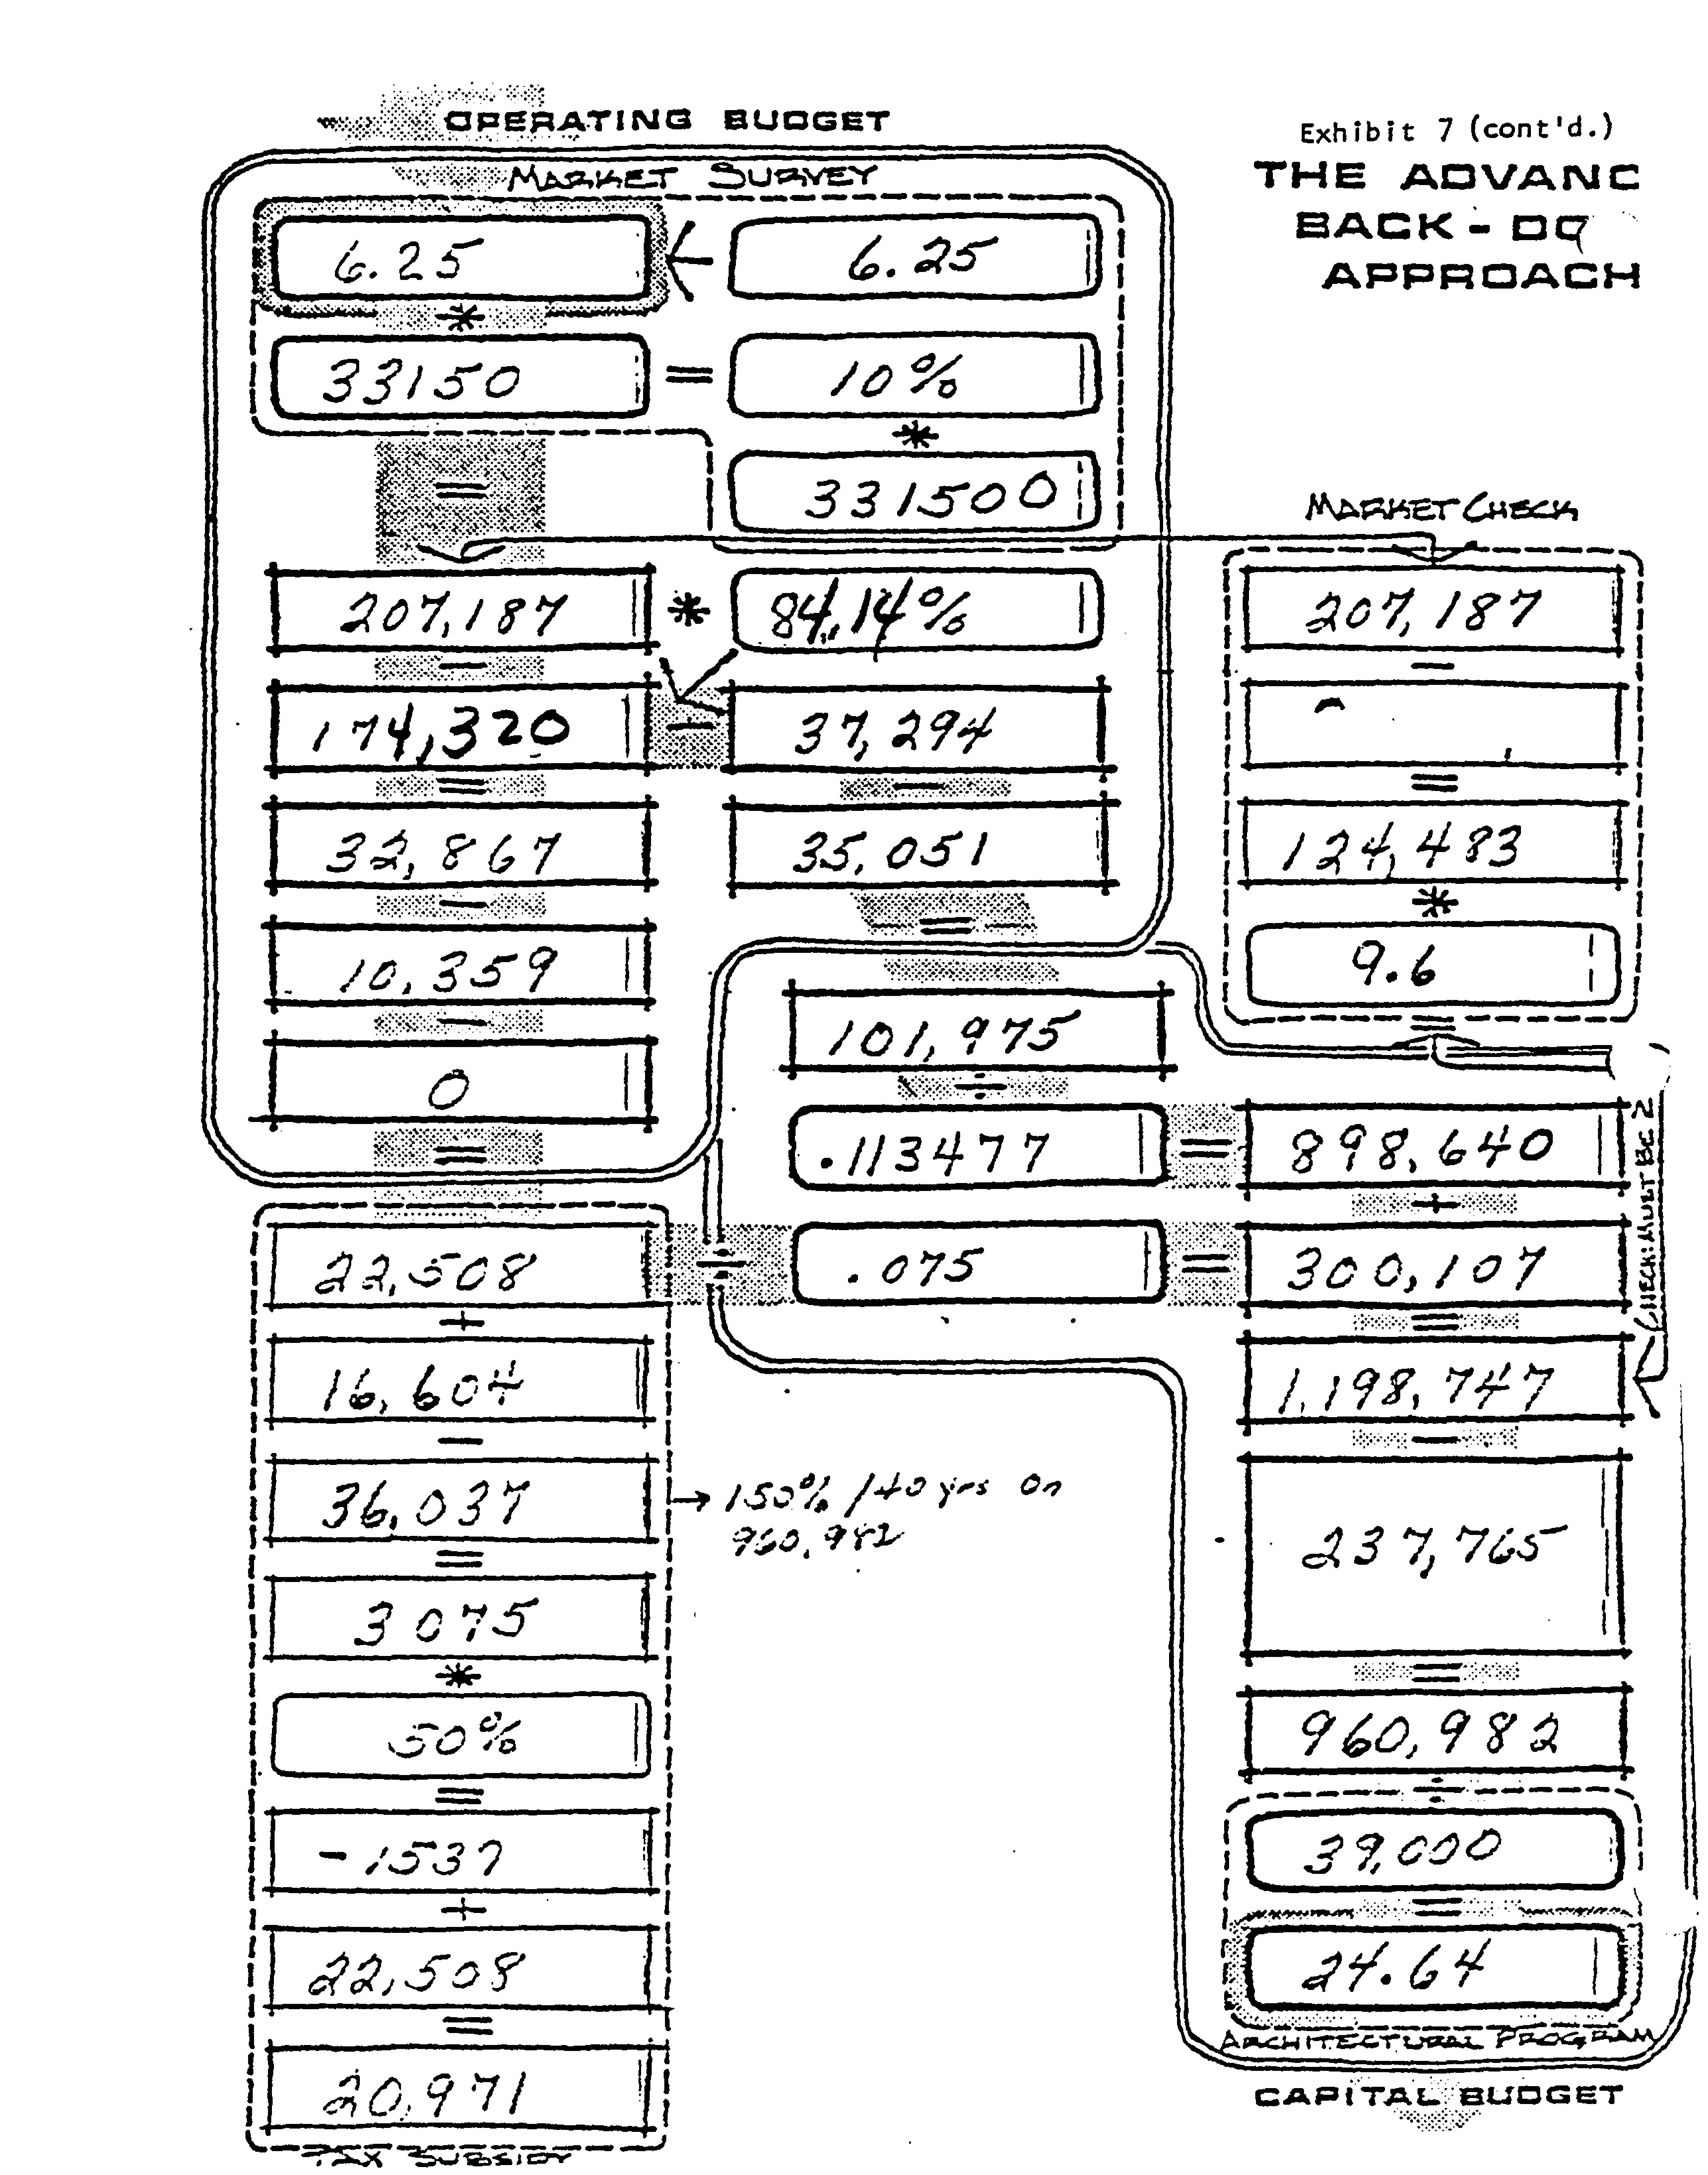 OPERATING BUDGET
Exhibit 7 (cont'd.)
THE ADVANC
BACK-DO
APPROACH
MARKET SURVEY
6.25 6.25
*
33150 = 10%
*
331500
=
MARKET CHECK
207,187 * 84.14% 207,187
− −
174,320 − 37,294
= − =
32,867 35,051 124,483
− = *
10,359 9.6
− =
101,975
0 ÷
= .113477 = 898,640
+
22,508 ÷ .075 = 300,107
+ =
16,604 1,198,747
CHECK: MULT BC 2
− −
36,037 → 150% / 40 yrs on
960,982
237,765
=
3075
* =
50% 960,982
= ÷
-1537 39,000
+ =
22,508 24.64
=
ARCHITECTURAL PROGRAM
20,971
CAPITAL BUDGET
TAX SUBSIDY